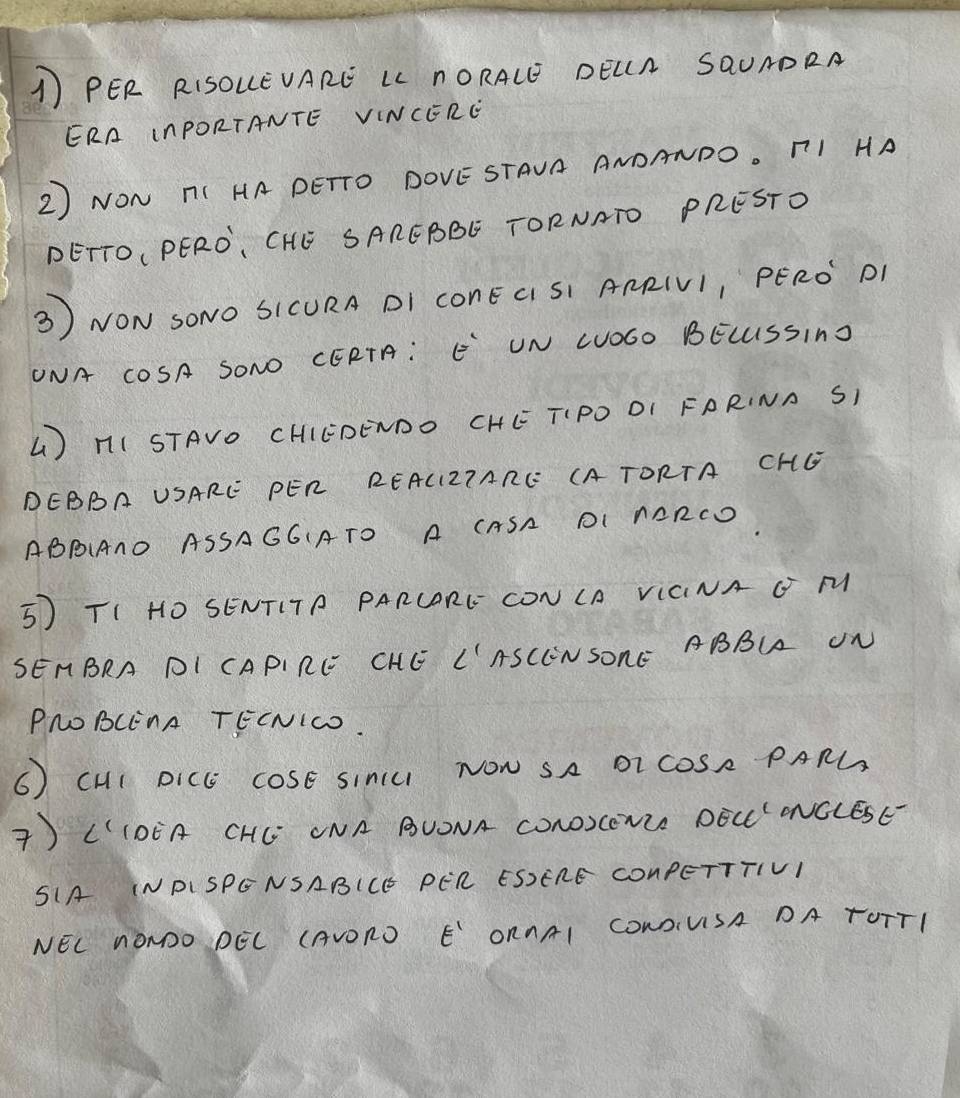 1) PER RISOLLEVARE IL MORALE DELLA SQUADRA
ERA IMPORTANTE VINCERE
2) NON MI HA DETTO DOVE STAVA ANDANDO. MI HA
DETTO, PERÒ, CHE SAREBBE TORNATO PRESTO
3) NON SONO SICURA DI COME CI SI ARRIVI, PERÒ DI
UNA COSA SONO CERTA: È UN LUOGO BELLISSIMO
4) MI STAVO CHIEDENDO CHE TIPO DI FARINA SI
DEBBA USARE PER REALIZZARE LA TORTA CHE
ABBIAMO ASSAGGIATO A CASA DI MARCO.
5) TI HO SENTITA PARLARE CON LA VICINA E MI
SEMBRA DI CAPIRE CHE L'ASCENSORE ABBIA UN
PROBLEMA TECNICO.
6) CHI DICE COSE SIMILI NON SA DI COSA PARLA
7) L'IDEA CHE UNA BUONA CONOSCENZA DELL'INGLESE
SIA INDISPENSABILE PER ESSERE COMPETITIVI
NEL MONDO DEL LAVORO E' ORMAI CONDIVISA DA TUTTI